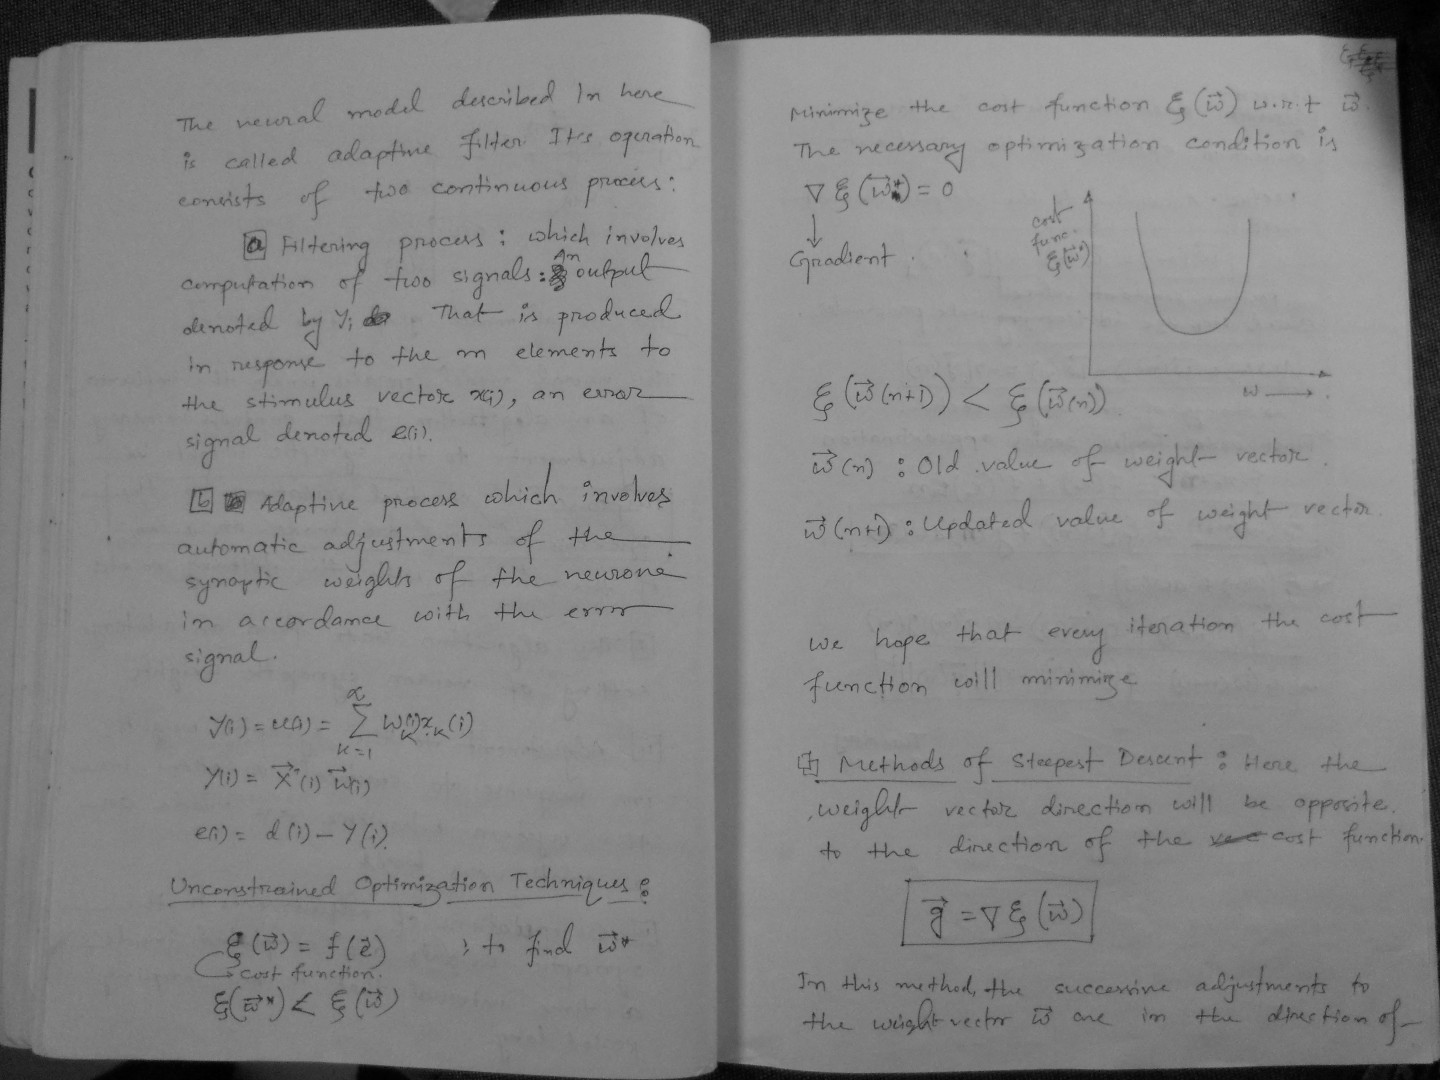 The neural model described In here
is called adaptive filter. It's operation
consists of two continuous process:
a Filtering process : which involves
computation of two signals : An output
denoted by Yi . That is produced
in response to the m elements to
the stimulus vector x(i), an error
signal denoted e(i).
b Adaptive process which involves
automatic adjustments of the
synaptic weights of the neurone
in accordance with the error
signal.
Y(i) = u(i) = ∑ k=1 ∝ wk(i)xk(i)
Y(i) = X⃗ᵀ(i) w⃗(i)
e(i) = d(i) – Y(i).
Unconstrained Optimization Techniques :
ξ(w⃗) = f(e⃗) ; to find w⃗*
cost function.
ξ(w⃗*) < ξ(w⃗)
Minimize the cost function ξ(w⃗) w.r.t w⃗.
The necessary optimization condition is
∇ξ(w⃗*) = 0
↓
Gradient .
cost
func.
ξ(w⃗*)
w →
ξ(w⃗(n+1)) < ξ(w⃗(n))
w⃗(n) : Old value of weight vector.
w⃗(n+1) : Updated value of weight vector.
we hope that every iteration the cost
function will minimize
Methods of Steepest Descent : Here the
weight vector direction will be opposite.
to the direction of the cost function.
g⃗ = ∇ξ(w⃗)
In this method, the successive adjustments to
the weight vector w⃗ are in the direction of